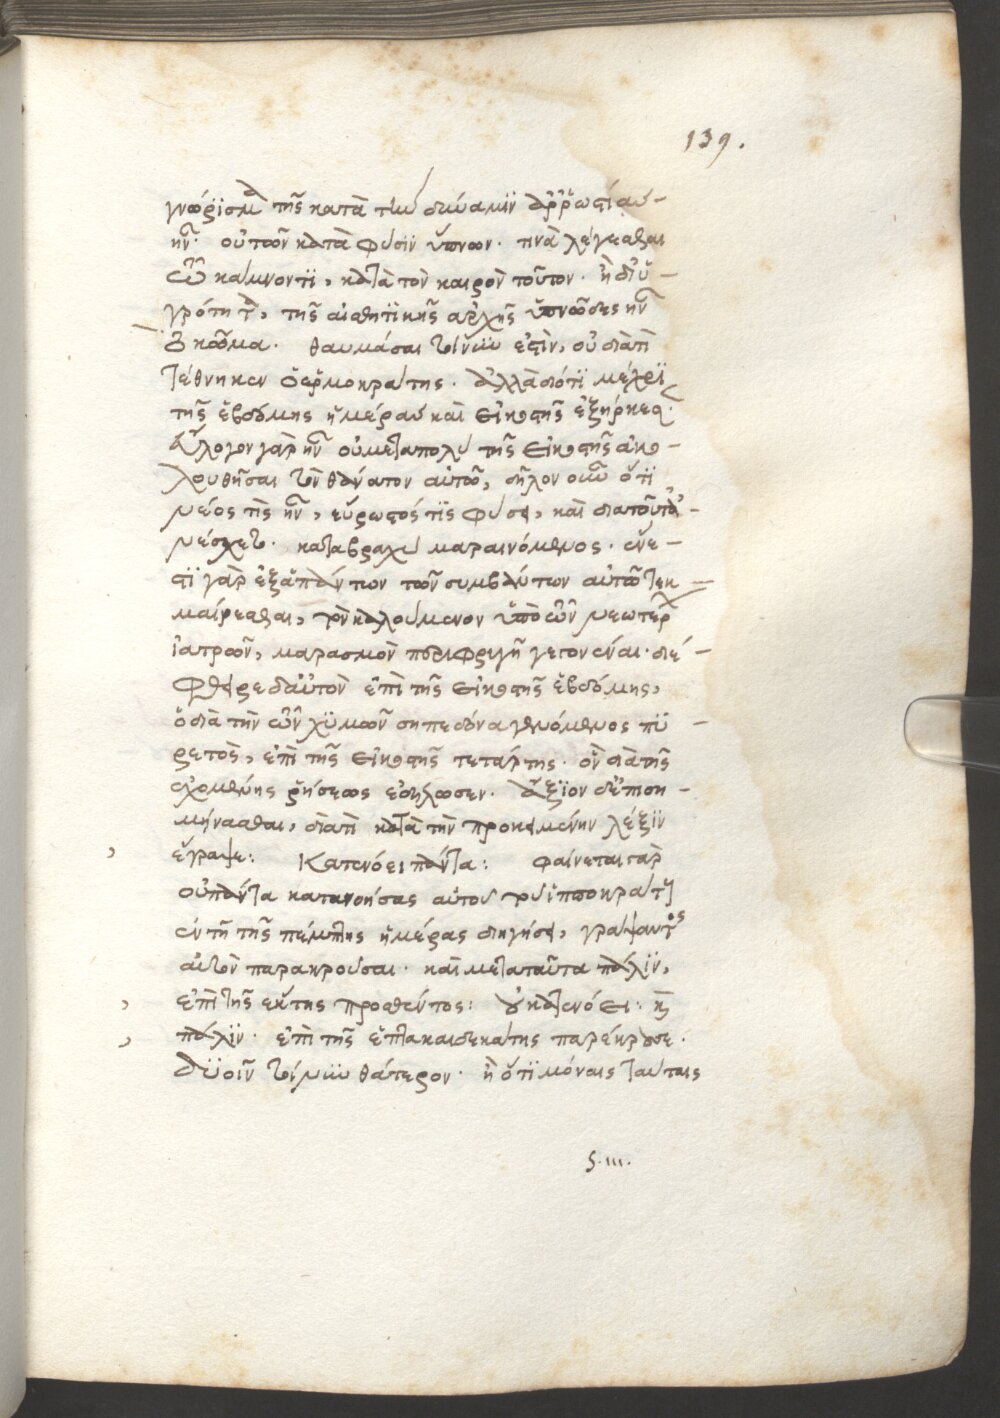 139.
γνώρϊσμα τῆς κατὰ τὴν δύναμϊν ἀῤῥωστίας
ἦν· οὐ τῶν κατὰ φύσιν ὕπνων. τινὰ λέγεσθαι
τῶ κάμνοντϊ, κατὰ τὸν καιρὸν τοῦτον· ἢ δι' ὑ-
γρότητα, τῆς αἰσθητϊκῆς ἀρχῆς ὑπνῶδες ἦν
τὸ κῶμα. θαυμάσαι τοίνυν ἐστὶν, οὐ διατὶ
τέθνηκεν ὁ ἑρμοκράτης. ἀλλὰ διότϊ μέχρϊ
τῆς ἑβδόμης ἡμέρας καὶ εἰκοστῆς ἐξήρκεσε·
ἄλογον γὰρ ἦν οὐ μεταπολὺ τῆς εἰκοστῆς ἀκο-
λουθῆσαι τὸν θάνατον αὐτῶ, δῆλον οὖν ὅτϊ
νέος τὶς ἦν, εὔρωστός τϊς φύσει, καὶ διατοῦτο ἀ-
νέσχετο. καταβραχὺ μαραινόμενος. ἔνε-
στϊ γὰρ ἐξ ἁπάντων τῶν συμβάντων αὐτῶ τεκ-
μαίρεσθαι, τὸν καλούμενον ὑπὸ τῶν νεωτέρων
ἰατρῶν, μαρασμὸν περιφρϊγῆ γεγον έναι. διέ-
φθειρε δ' αὐτὸν ἐπὶ τῆς εἰκοστῆς ἑβδόμης,
ὁ διὰ τὴν τῶν χϋμῶν σηπεδόνα γενόμενος πϋ-
ρετὸς, ἐπὶ τῆς εἰκοστῆς τετάρτης. ὃν διὰ τῆς
ἐχομένης ῥήσεως ἐδήλωσεν. ἄξϊον δ' ἐπιση-
μήνασθαι, διατὶ κατὰ τὴν προκειμένην λέξϊν
ἔγραψε: Κατενόει πάντα: φαίνεται γὰρ
οὐ πάντα κατανοήσας αὐτοῦ τοῦ ἱπποκράτους
ἐν τῆ τῆς πέμπτης ἡμέρας διηγήσει, γράψαντος
αὐτὸν παρακροῦσαι. καὶ μετα ταῦτα πάλϊν,
ἐπὶ τῆς ἕκτης προσθέντος: οὐ κατενόει: καὶ
πάλϊν. ἐπὶ τῆς ἑπτακαιδεκάτης παρέκρουσε.
δϋοῖν τοίνυν θάτερον. ἢ ὅτϊ μόναις ταύταις
S. III.